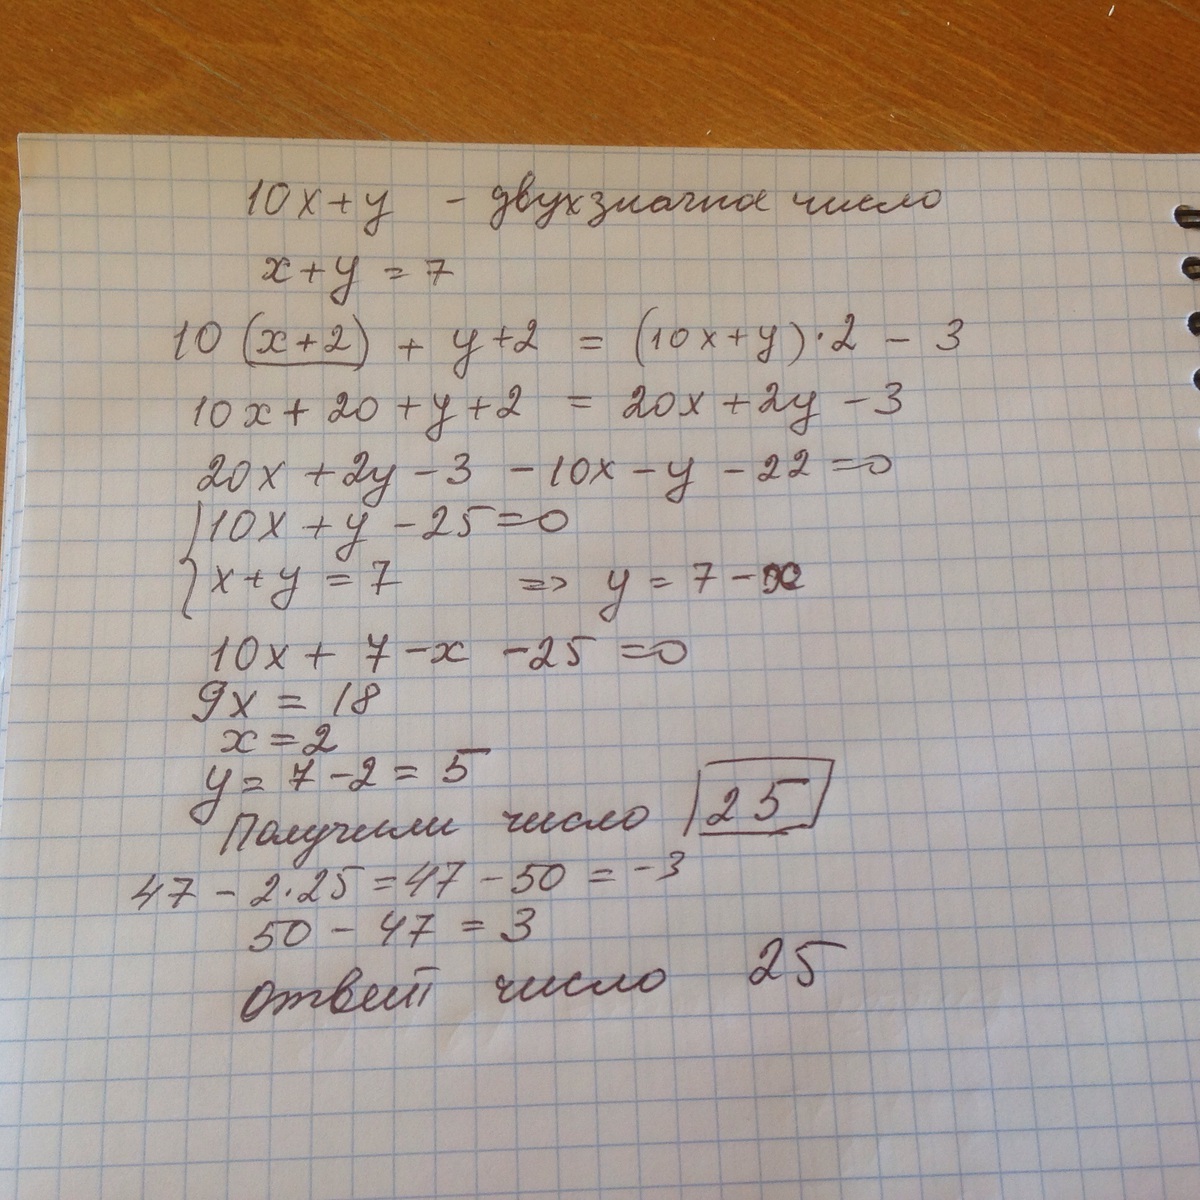 10x+y - двухзначное число
x+y = 7
10 (x+2) + y+2 = (10x+y)·2 - 3
10x + 20 + y + 2 = 20x + 2y - 3
20x + 2y - 3 - 10x - y - 22 = 0
10x + y - 25 = 0
x + y = 7 => y = 7 - x
10x + 7 - x - 25 = 0
9x = 18
x = 2
y = 7 - 2 = 5
Получили число 25
47 - 2·25 = 47 - 50 = -3
50 - 47 = 3
ответ число 25